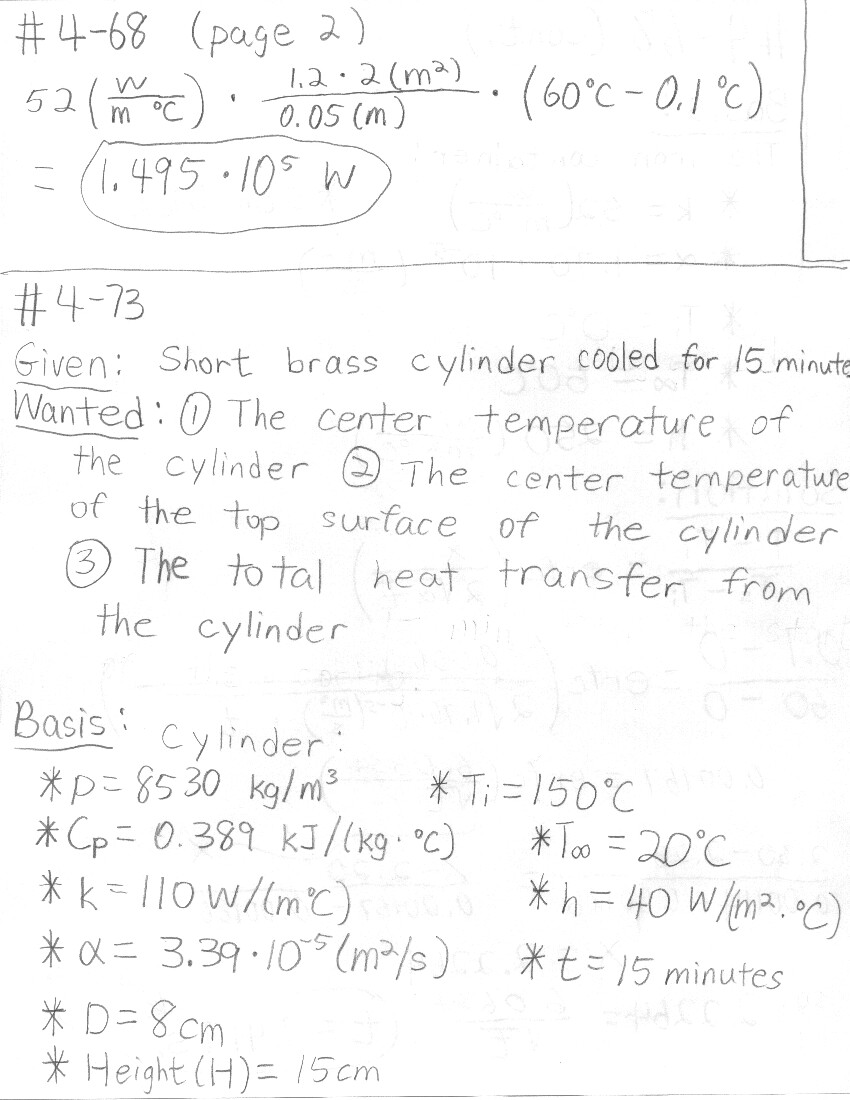 #4-68 (page 2)
52 (W/m °C) · 1.2 · 2 (m²)/0.05 (m) · (60°C - 0.1 °C)
= 1.495 · 10⁵ W
#4-73
Given: Short brass cylinder cooled for 15 minute
Wanted: ① The center temperature of
the cylinder ② The center temperature
of the top surface of the cylinder
③ The total heat transfer from
the cylinder
Basis: Cylinder:
* ρ = 8530 kg/m³ * Ti = 150°C
* Cp = 0.389 kJ/(kg · °C) * T∞ = 20°C
* k = 110 W/(m°C) * h = 40 W/(m² · °C)
* α = 3.39 · 10⁻⁵ (m²/s) * t = 15 minutes
* D = 8cm
* Height (H) = 15cm